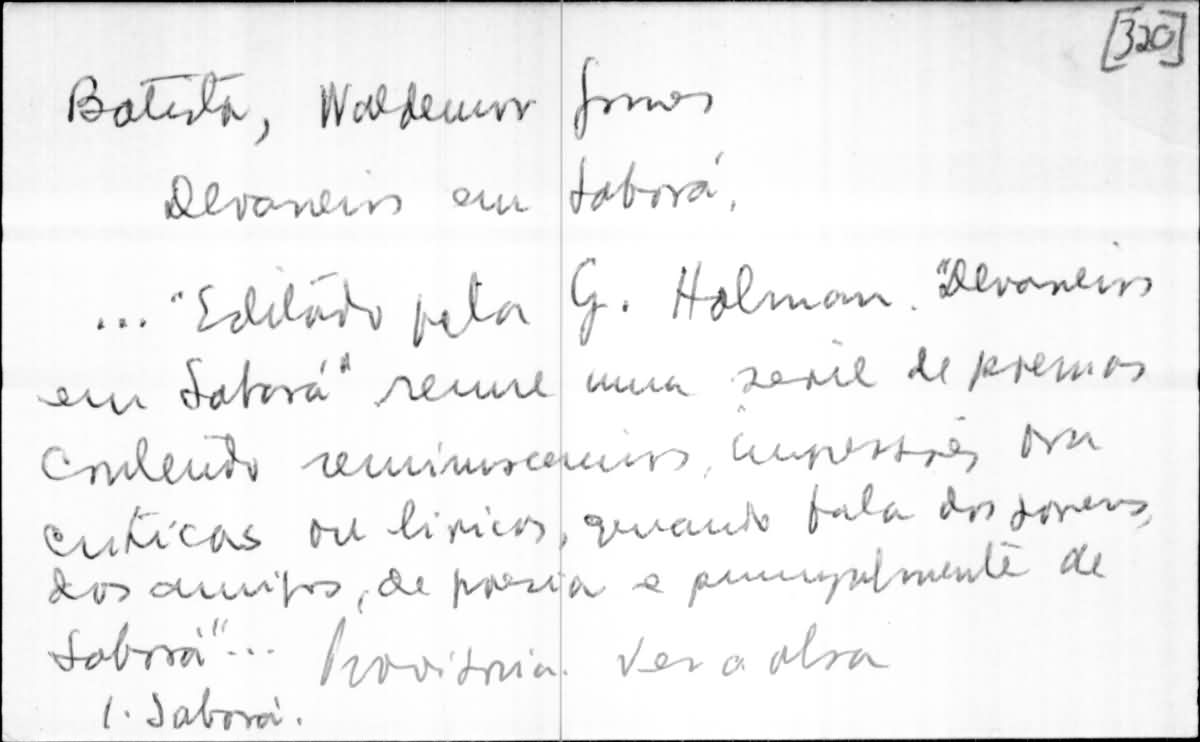 [320]
Batista, Waldemar Gomes
Devaneios em Sabará.
... "Editado pela G. Holman. "Devaneios
em Sabará" reune uma serie de poemas
contendo reminiscencias, impressões ora
criticas ou liricas, quando fala dos
dos amigos, de poesia e principalmente de
Sabará"... Provisoria. Ver a obra
1. Sabará.